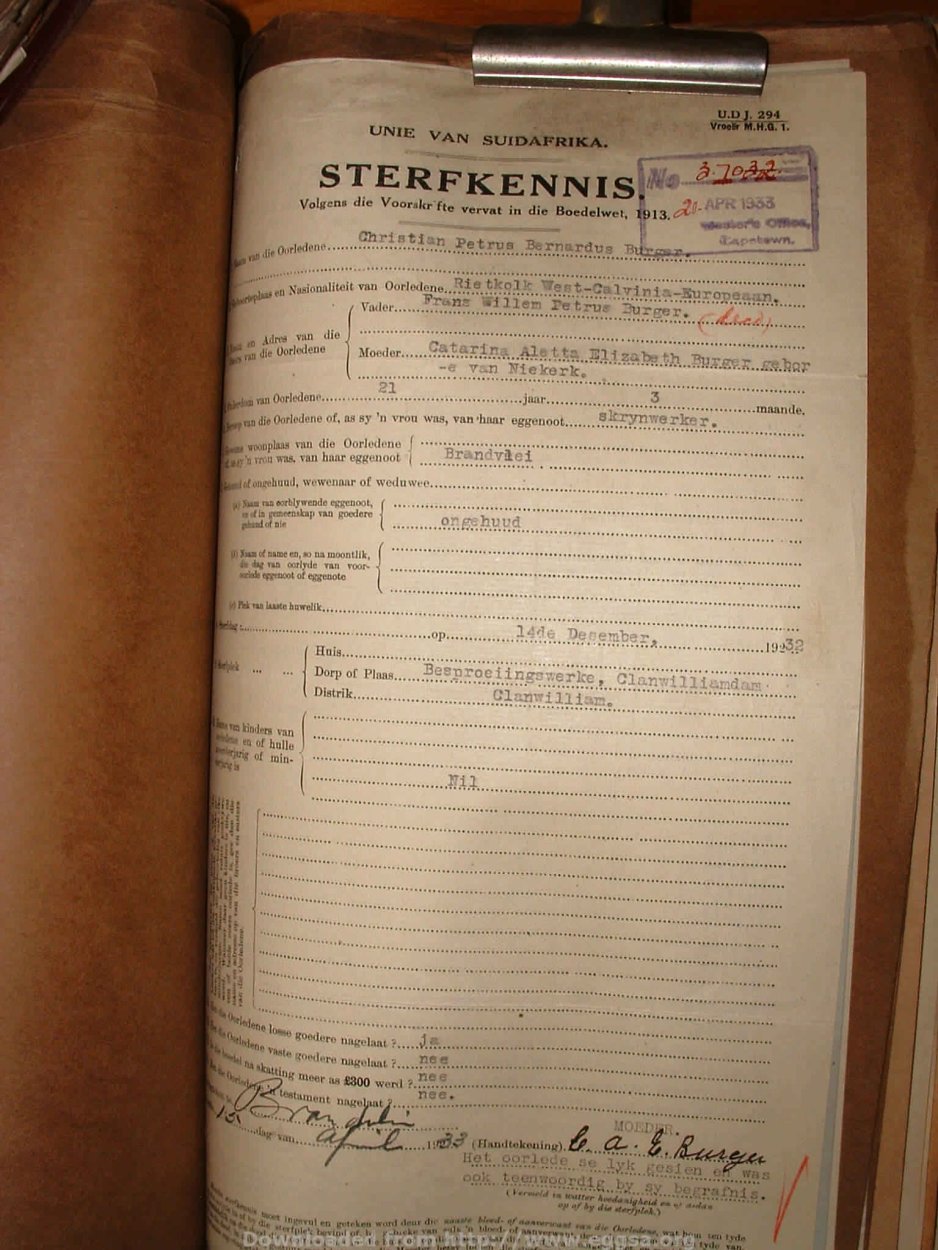 U.D.J. 294
Vroeër M.H.G. 1.
UNIE VAN SUIDAFRIKA.
STERFKENNIS.
Volgens die Voorskr fte vervat in die Boedelwet, 1913.
No 3.7032
20 APR 1933
Master's Office,
Capetown.
van die Oorledene Christian Petrus Bernardus Burger.
en Nasionaliteit van Oorledene Rietkolk West-Calvinia-Europeaan.
Vader Frans Willem Petrus Burger. (dead)
en Adres van die
van die Oorledene
Moeder Catarina Aletta Elizabeth Burger gebor
-e van Niekerk.
van Oorledene 21 jaar 3 maande.
van die Oorledene of, as sy 'n vrou was, van haar eggenoot skrynwerker.
woonplaas van die Oorledene
of, as sy 'n vrou was, van haar eggenoot Brandvlei
of ongehuud, wewenaar of weduwee
(a) Naam van oorblywende eggenoot,
en of in gemeenskap van goedere
gehuud of nie ongehuud
(b) Naam of name en, so na moontlik,
die dag van oorlyde van voor-
oorlede eggenoot of eggenote
(c) Plek van laaste huwelik
op 14de Desember, 1932
Huis
Dorp of Plaas Besproeiingswerke, Clanwilliamdam
Distrik Clanwilliam.
van kinders van
en of hulle
of min-
is
Nil
van die Oorledene.
die Oorledene losse goedere nagelaat ? ja
die Oorledene vaste goedere nagelaat ? nee
boedel na skatting meer as £300 werd ? nee
testament nagelaat ? nee.
Brandvlei
15 dag van April 1933 (Handtekening) C. A. E. Burger
MOEDER.
Het oorlede se lyk gesien en was
ook teenwoordig by sy begrafnis.
(Vermeld in watter hoedanigheid en of aldan
op of by die sterfplek.)
moet ingevul en geteken word deur die naaste bloed- of aanverwant van die Oorledene, wat ten tyde
Downloaded from http://www.eggsa.org